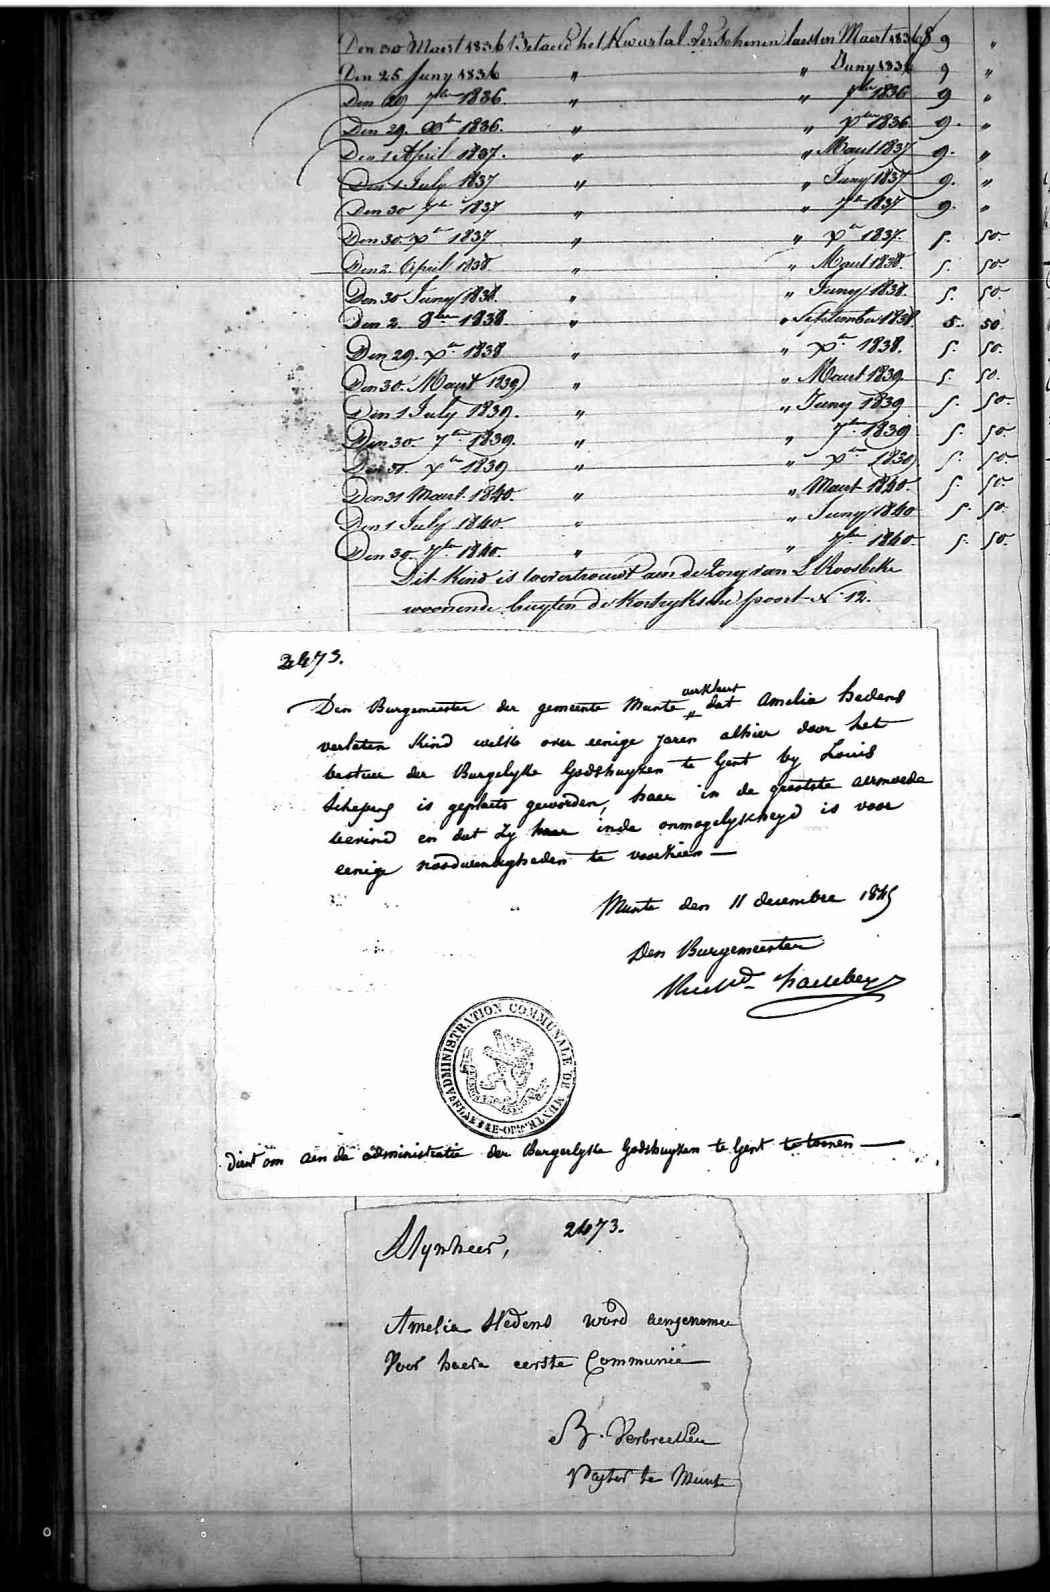 Den 30 Maert 1836 Betaeld het Kwartal verschenen laesten Maert 1836 9 "
Den 25 Juny 1836 " " Juny 1836 9 "
Den 29 7ber 1836. " " 7ber 1836 9 "
Den 29. xber 1836. " " xber 1836 9. "
Den 1 April 1837. " " Maert 1837 9. "
Den 1 July 1837 " " Juny 1837 9. "
Den 30 7ber 1837 " " 7ber 1837 9. "
Den 30. xber 1837 " " xber 1837. 5. 50.
Den 2. April 1838. " " Maert 1838. 5. 50.
Den 30 Juny 1838. " " Juny 1838. 5. 50.
Den 2. 8ber 1838. " " September 1838 5.. 50.
Den 29. xber 1838 " " xber 1838. 5. 50.
Den 30. Maert 1839 " " Maert 1839. 5. 50.
Den 1 July 1839. " " Juny 1839 5. 50.
Den 30. 7ber 1839. " " 7ber 1839 5. 50.
Den 30. xber 1839 " " xber 1839 5. 50.
Den 31 Maert. 1840. " " Maert 1840. 5. 50.
Den 1 July 1840. " " Juny 1840 5. 50.
Den 30. 7ber 1840. " " 7ber 1840 5. 50.
Dit Kind is toevertrouwt aen de Zorg van L Roosbeke
woonende buyten de Kortryksche poort N. 12.
2473.
Den Burgemeester der gemeente Munte verklaert dat Amelia hedens
verlaten Kind welk over eenige jaren alhier door het
bestuer der Burgelyke Godshuyzen te Gent by Louis
Schepens is geplaets geworden, haer in de grootste aermoede
bevind en dat zy haer inde onmogelyscheyd is voor
eenige noodwendigheden te voorzien —
Munte den 11 decembre 1845
Den Burgemeester
ADMINISTRATION COMMUNALE DE MUNTE
FLANDRE-ORIENTALE
Dient om aen de administratie der Burgerlyke Godshuyzen te Gent te toonen —
2473.
Mynheer,
Amelia Hedens word aengenomen
Voor haere eerste Communie
B. Verbreecken
Pastor te Munte